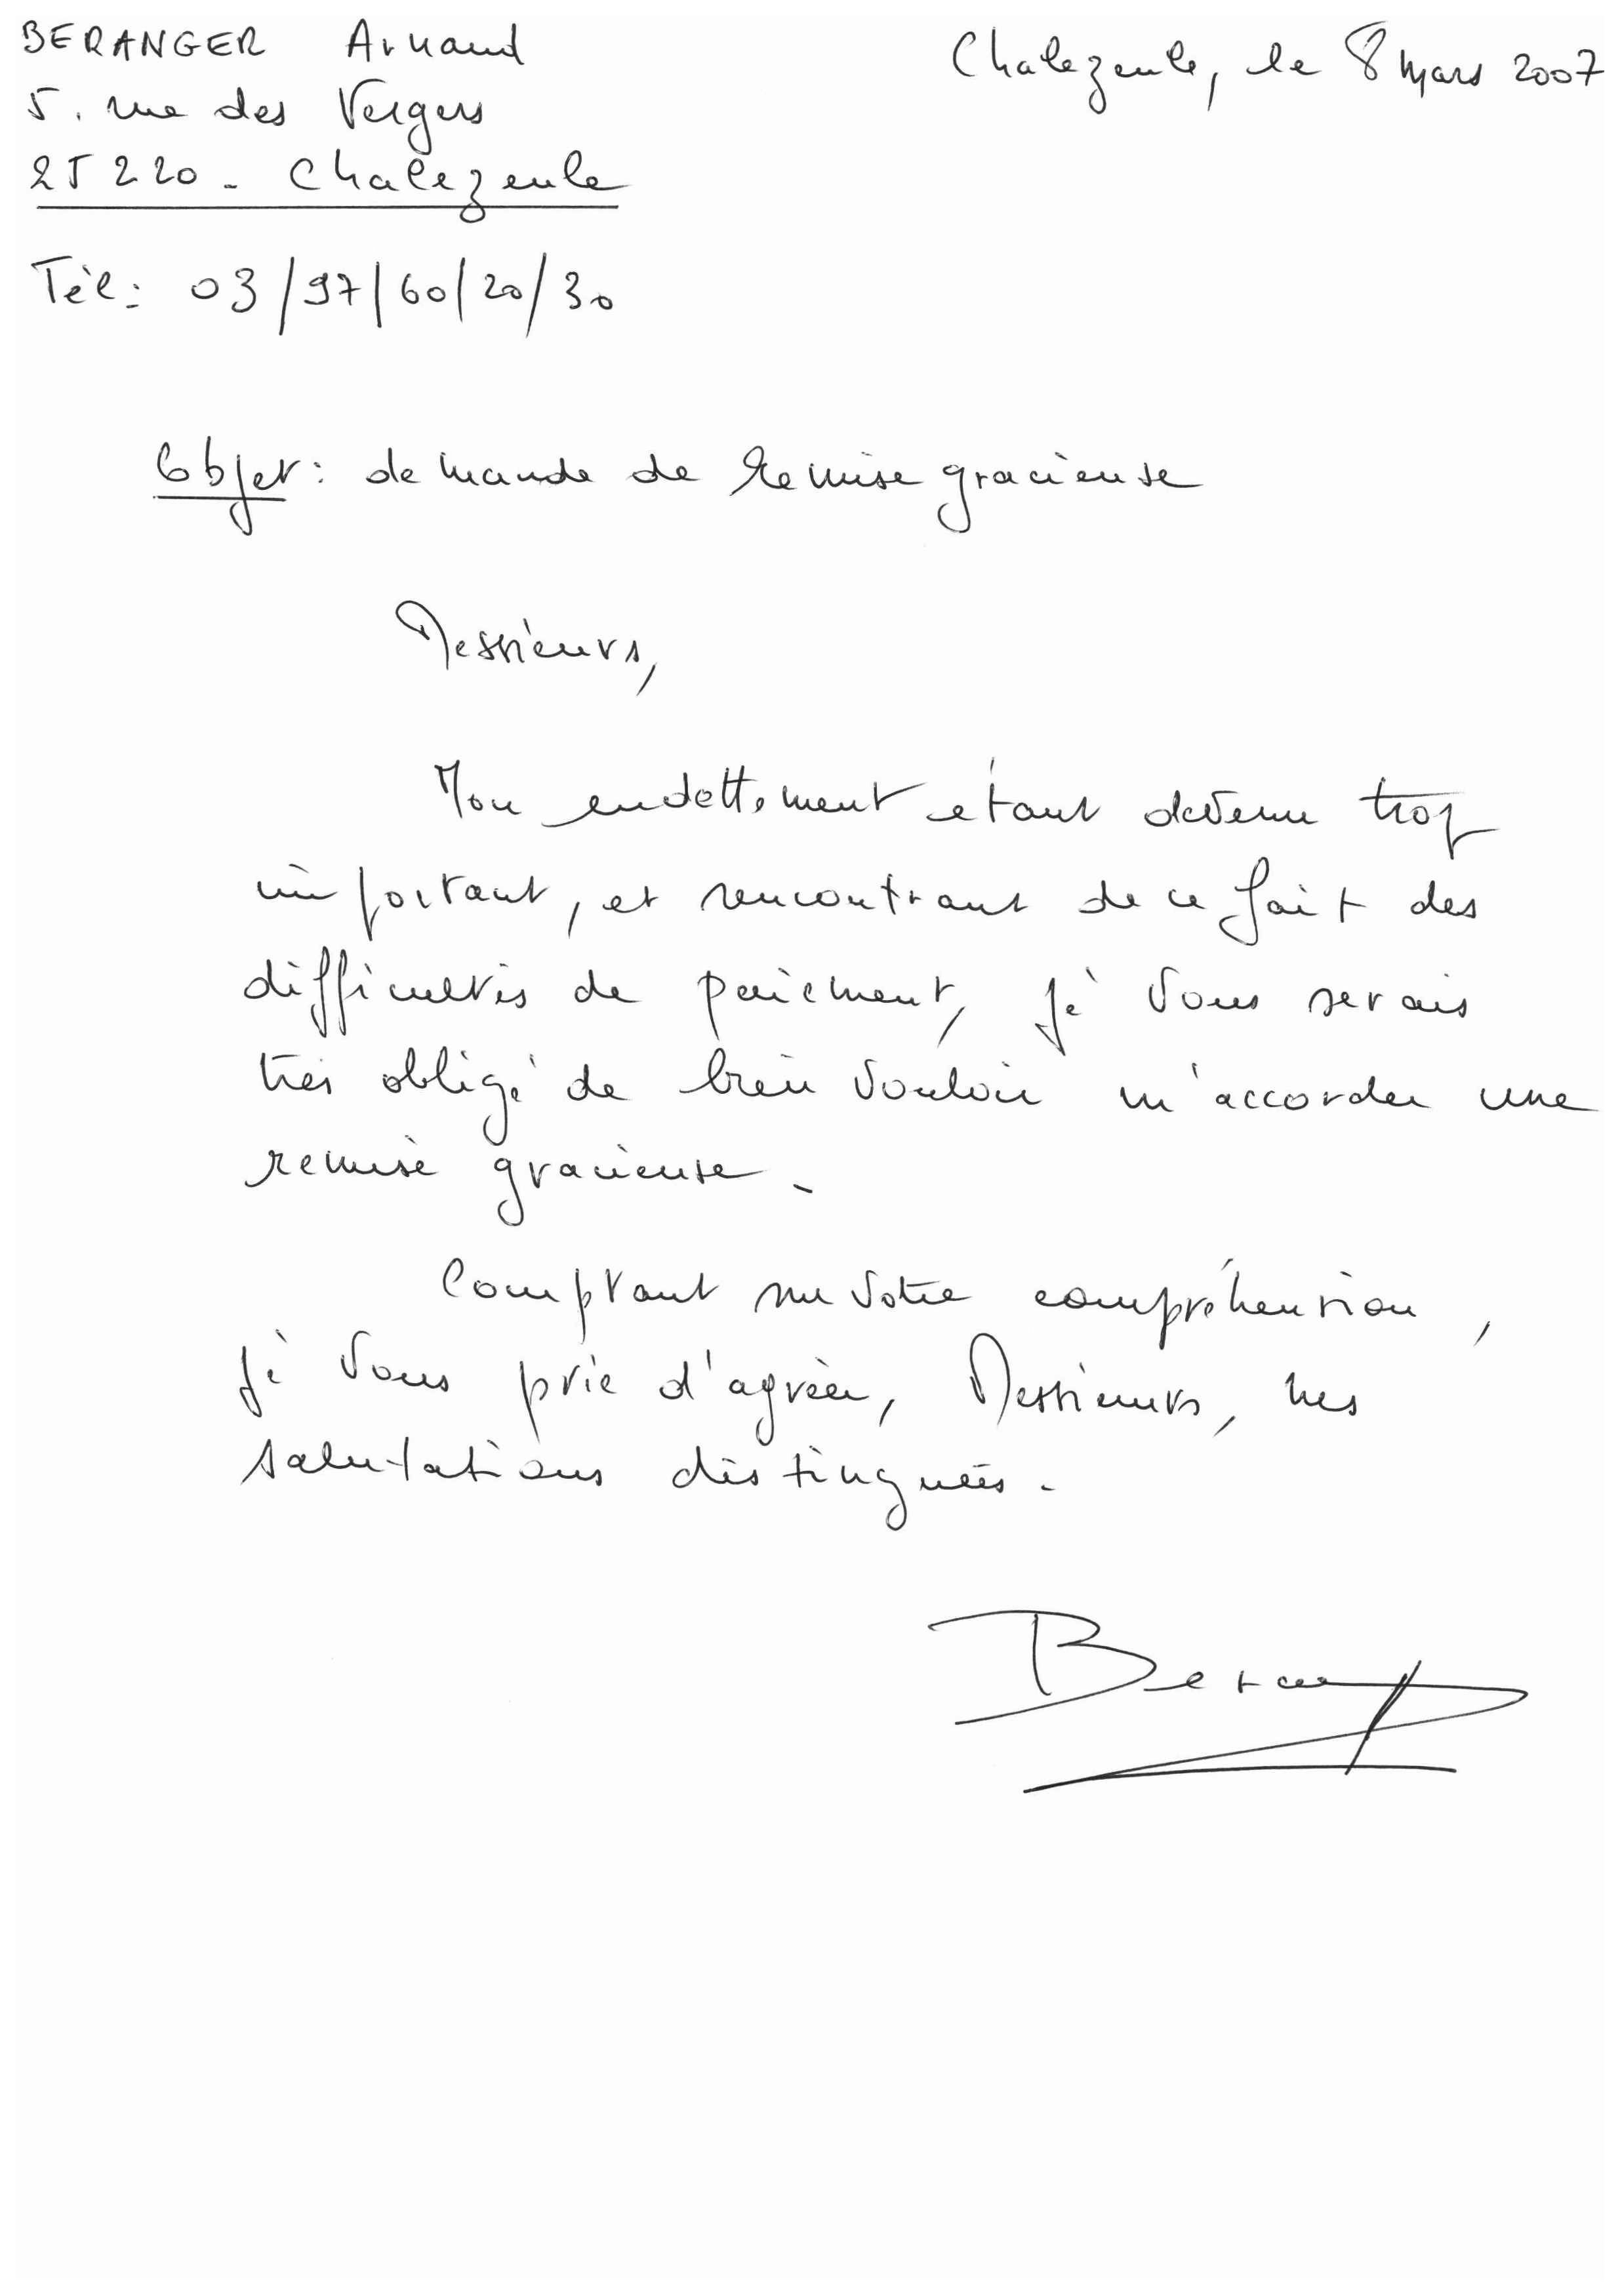 BERANGER Arnaud
Chalezeule, le 8 mars 2007
5. rue des Vergers
25220 - Chalezeule
Tél: 03/97/60/20/30
Objet: demande de remise gracieuse
Messieurs,
Mon endettement étant devenu trop
important, et rencontrant de ce fait des
difficultés de paiement, je vous serais
très obligé de bien vouloir m'accorder une
remise gracieuse.
Comptant sur votre compréhension,
je vous prie d'agréer, Messieurs, mes
salutations distinguées.